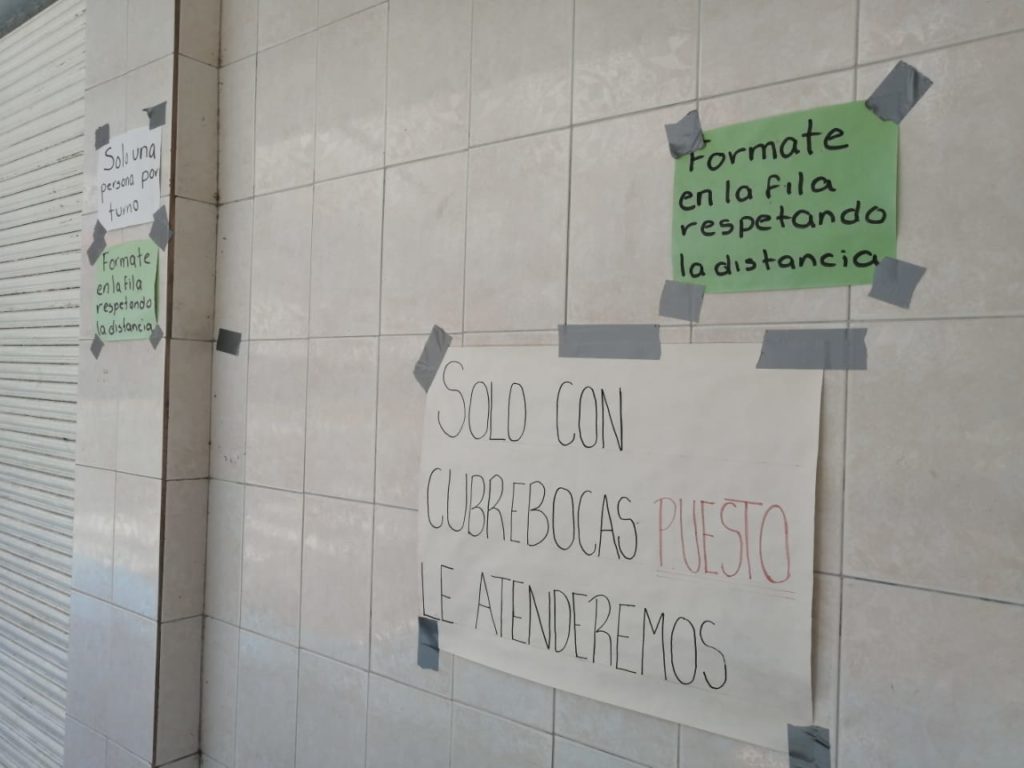 Solo una
persona por
turno
Formate
en la fila
respetando
la distancia
Formate
en la fila
respetando
la distancia
SOLO CON
CUBREBOCAS PUESTO
LE ATENDEREMOS